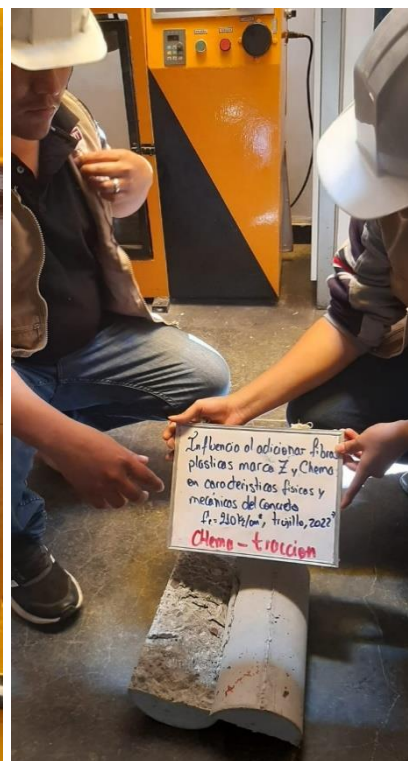 Influencia al adicionar fibras
plásticas marca Z y Chema
en características físicas y
mecánicas del Concreto
f'c=210 k/cm², trujillo, 2022"
CHema - tracción